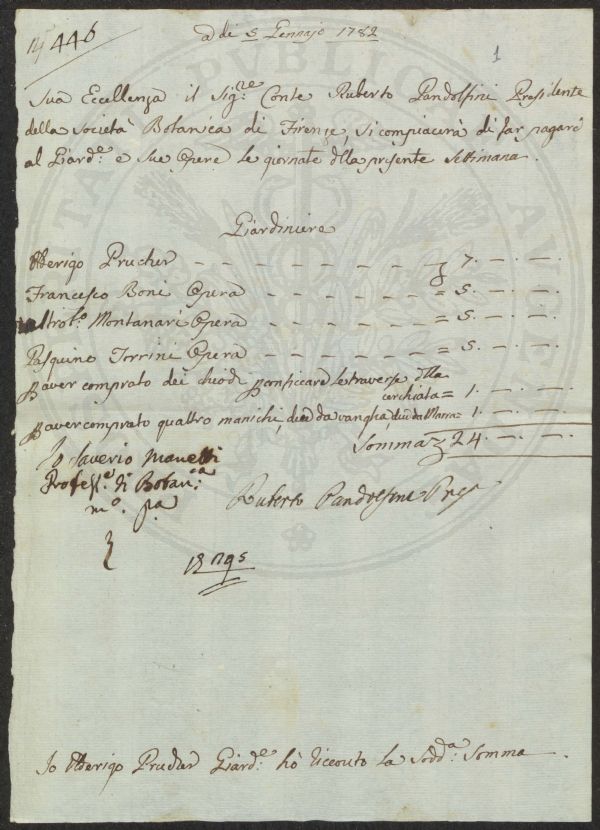 446
a dì 5 Gennajo 1782
1
Sua Eccellenza il Sig:re Conte Ruberto Pandolfini Presidente
della Società Botanica di Firenze, si compiacerà di far pagare
al Giard:e e sue Opere le giornate dlla presente Settimana.
Giardiniere
Alderigo Prucher 7. — . —
Francesco Boni Opera = 5. — . —
Montanari Opera = 5. — . —
Pasquino Torrini Opera = 5. — . —
P aver comprato dei chiodi p conficcare le traverse dlla
cerchiata = 1. — . —
P aver comprato quattro manichi, due da vanga, due da Marra = 1. — . —
Somma 24. — . —
Io Saverio Manetti
Profess:e di Botan:ca
m:o p:a
Ruberto Pandolfini Pres
Io Alderigo Prucher Giard:e hò riceuto la Sodd:a Somma